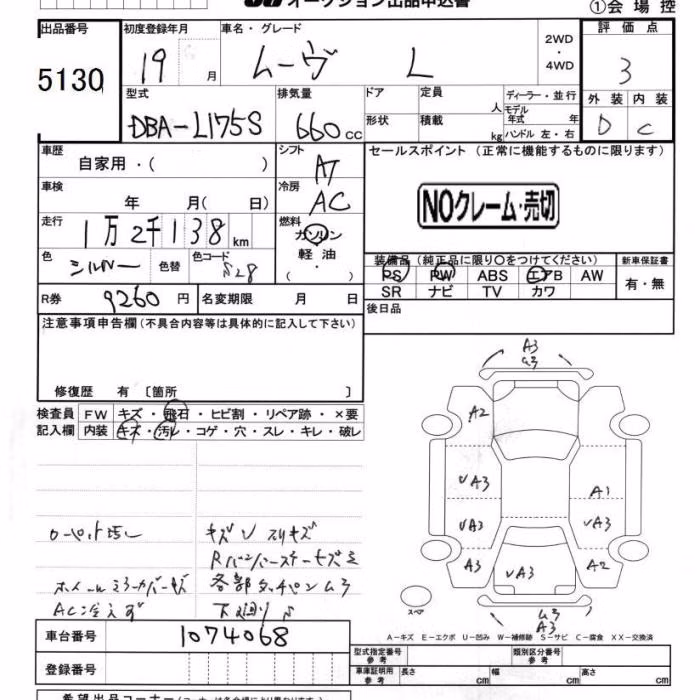 オークション出品申込書
①会場控
出品番号 初度登録年月 車名・グレード 評価点
5130 19 月 ムーヴ L 2WD・4WD 3
型式 排気量 ドア 定員 人 ディーラー・並行 外装 内装
DBA-L175S 660cc 形状 積載 kg モデル年式 年 ハンドル 左・右 D C
車歴 シフト セールスポイント(正常に機能するものに限ります)
自家用・( ) AT
車検 冷房 NOクレーム・売切
年 月( 日) AC
走行 燃料
1万2千138km ガソリン
色 色替 色コード 軽油・ 装備品(純正品に限り○をつけてください) 新車保証書
シルバー S28 ( ) PS PW ABS エアB AW 有・無
SR ナビ TV カワ
R券 9260円 名変期限 月 日 後日品
注意事項申告欄(不具合内容等は具体的に記入して下さい)
修復歴 有〔箇所 〕
検査員 FW キズ・飛石・ヒビ割・リペア跡・×要
記入欄 内装 キズ・汚レ・コゲ・穴・スレ・キレ・破レ
A3
A2
UA3 A1
UA3 UA3
A3 UA3 A2
A3
キズU スリキズ
各部タッチペンムラ
AC冷えず 下廻りS
スペア
A-キズ E-エクボ U-凹み W-補修跡 S-サビ C-腐食 XX-交換済
車台番号 1074068
型式指定番号 参考 類別区分番号 参考
登録番号 車庫証明用 参考 長さ cm 幅 cm 高さ cm
希望出品コーナー